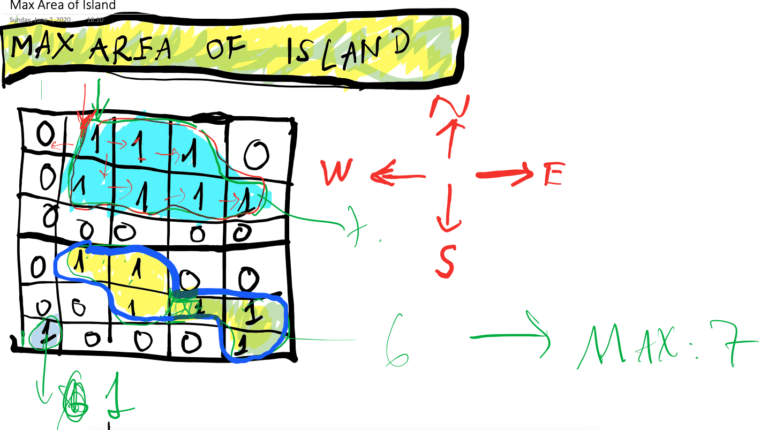 Max Area of Island
Sunday, June 7, 2020
MAX AREA OF ISLAND
N
W E
S
0 1 1 1 0
0 1 1 1 1
0 0 0 0 0
0 1 1 0 0
0 0 1 1 1
1 0 0 0 1
7.
6 → MAX: 7
1